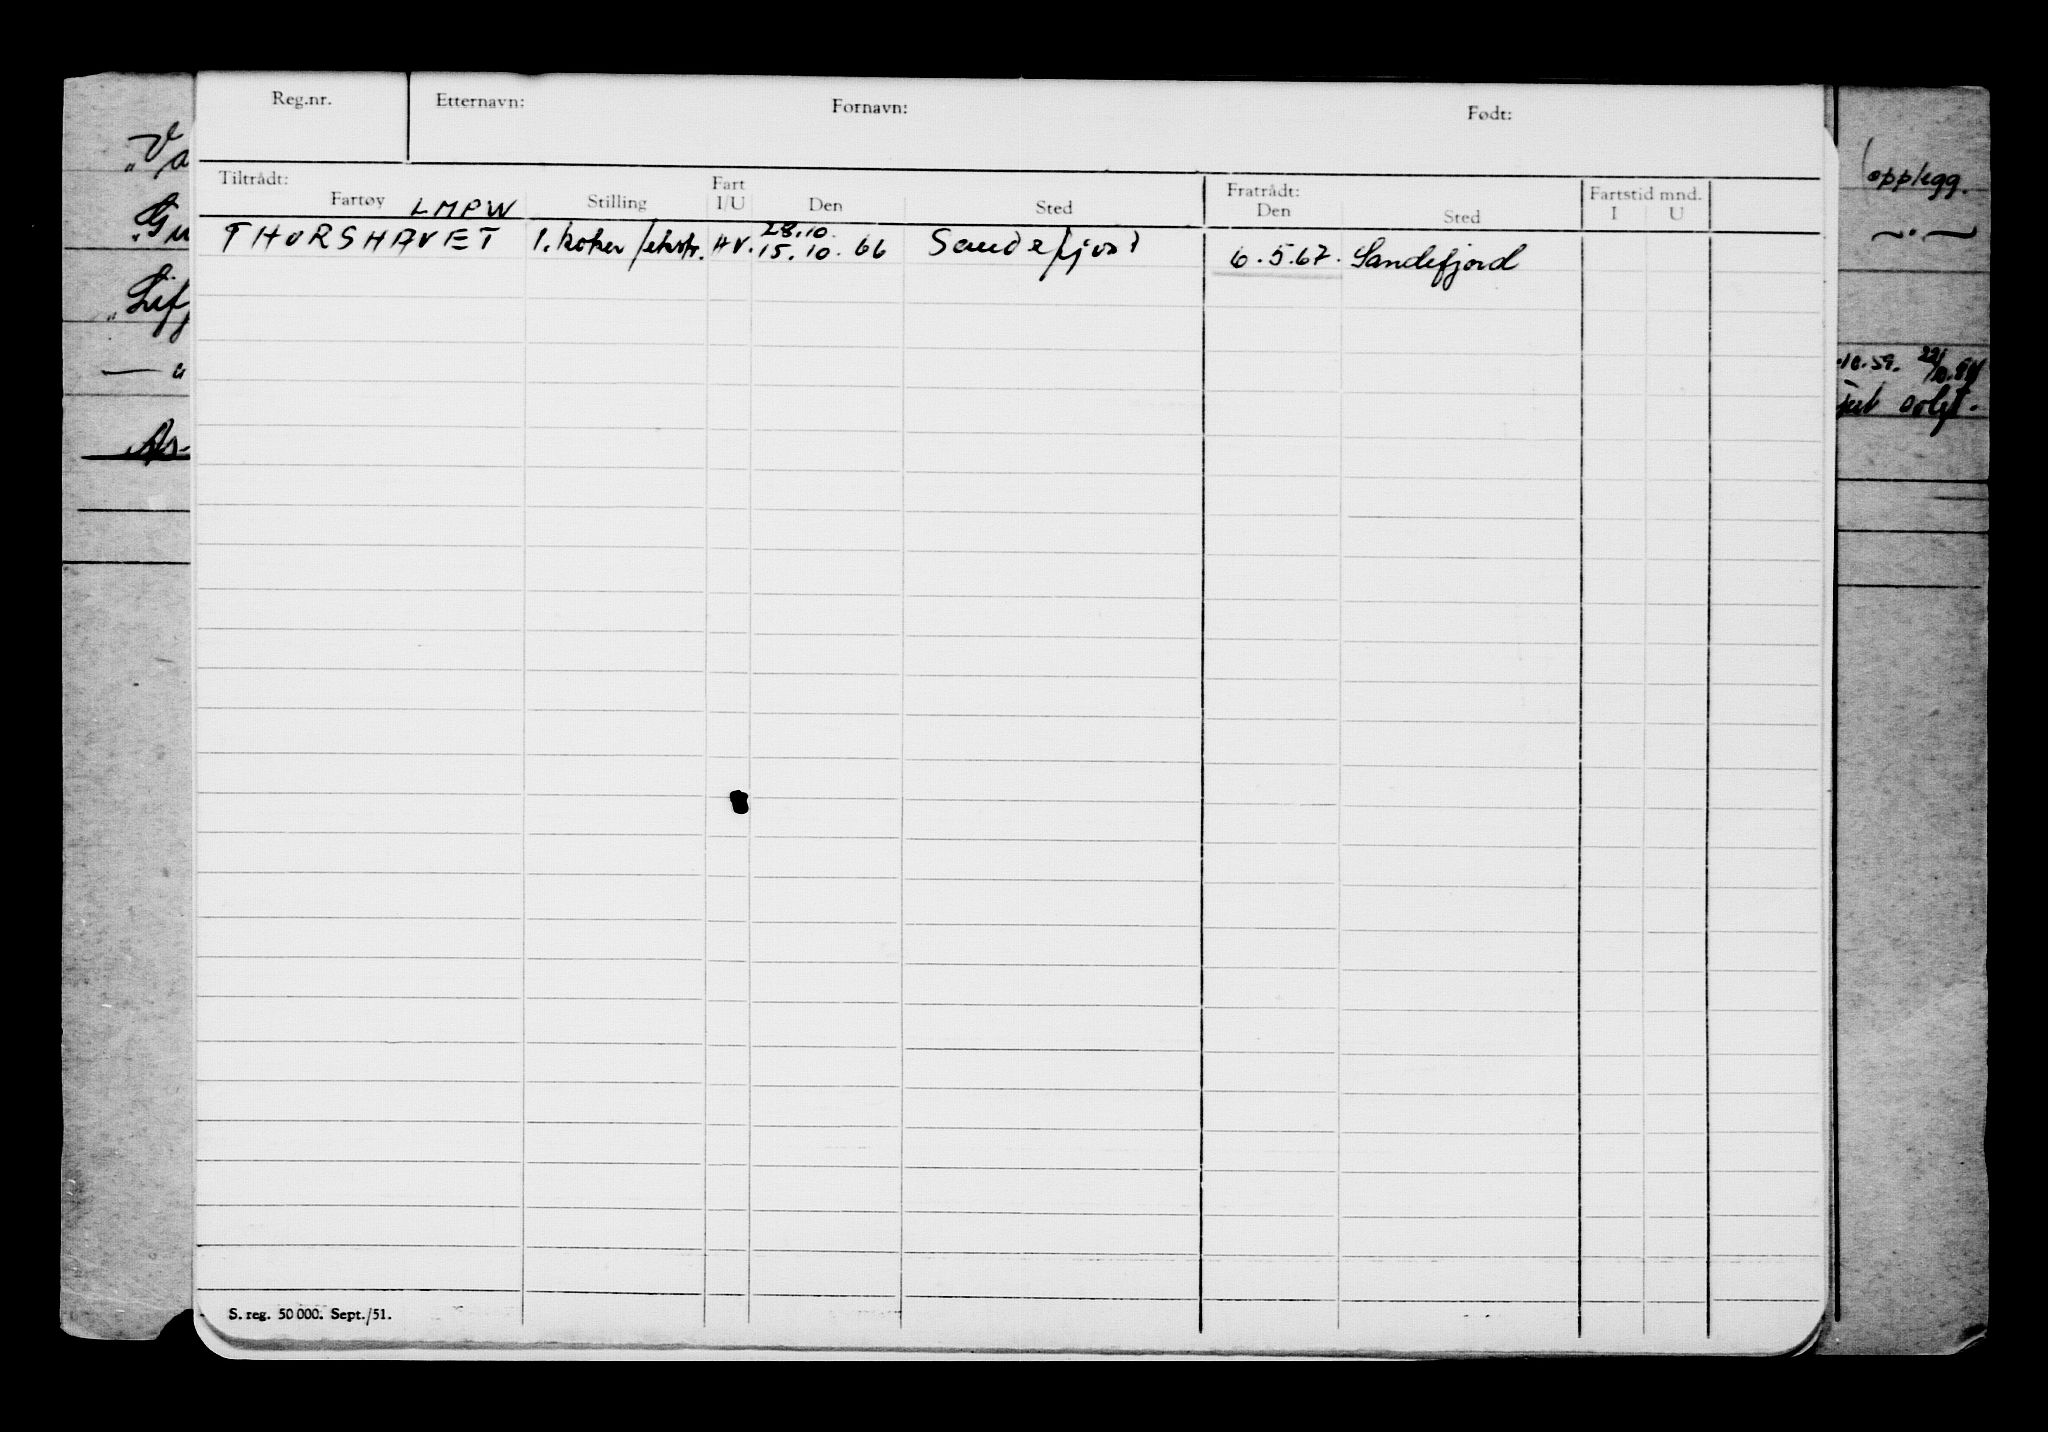 Reg.nr. Etternavn: Fornavn: Født:
Tiltrådt: Fart Fratrådt: Fartstid mnd.
Fartøy LMPW Stilling I/U Den Sted Den Sted I U
28.10.
THORSHAVET 1. koker /ekstr. HV. 15.10.66 Sandefjord 6.5.67. Sandefjord
opplegg.
S. reg. 50 000. Sept./51.